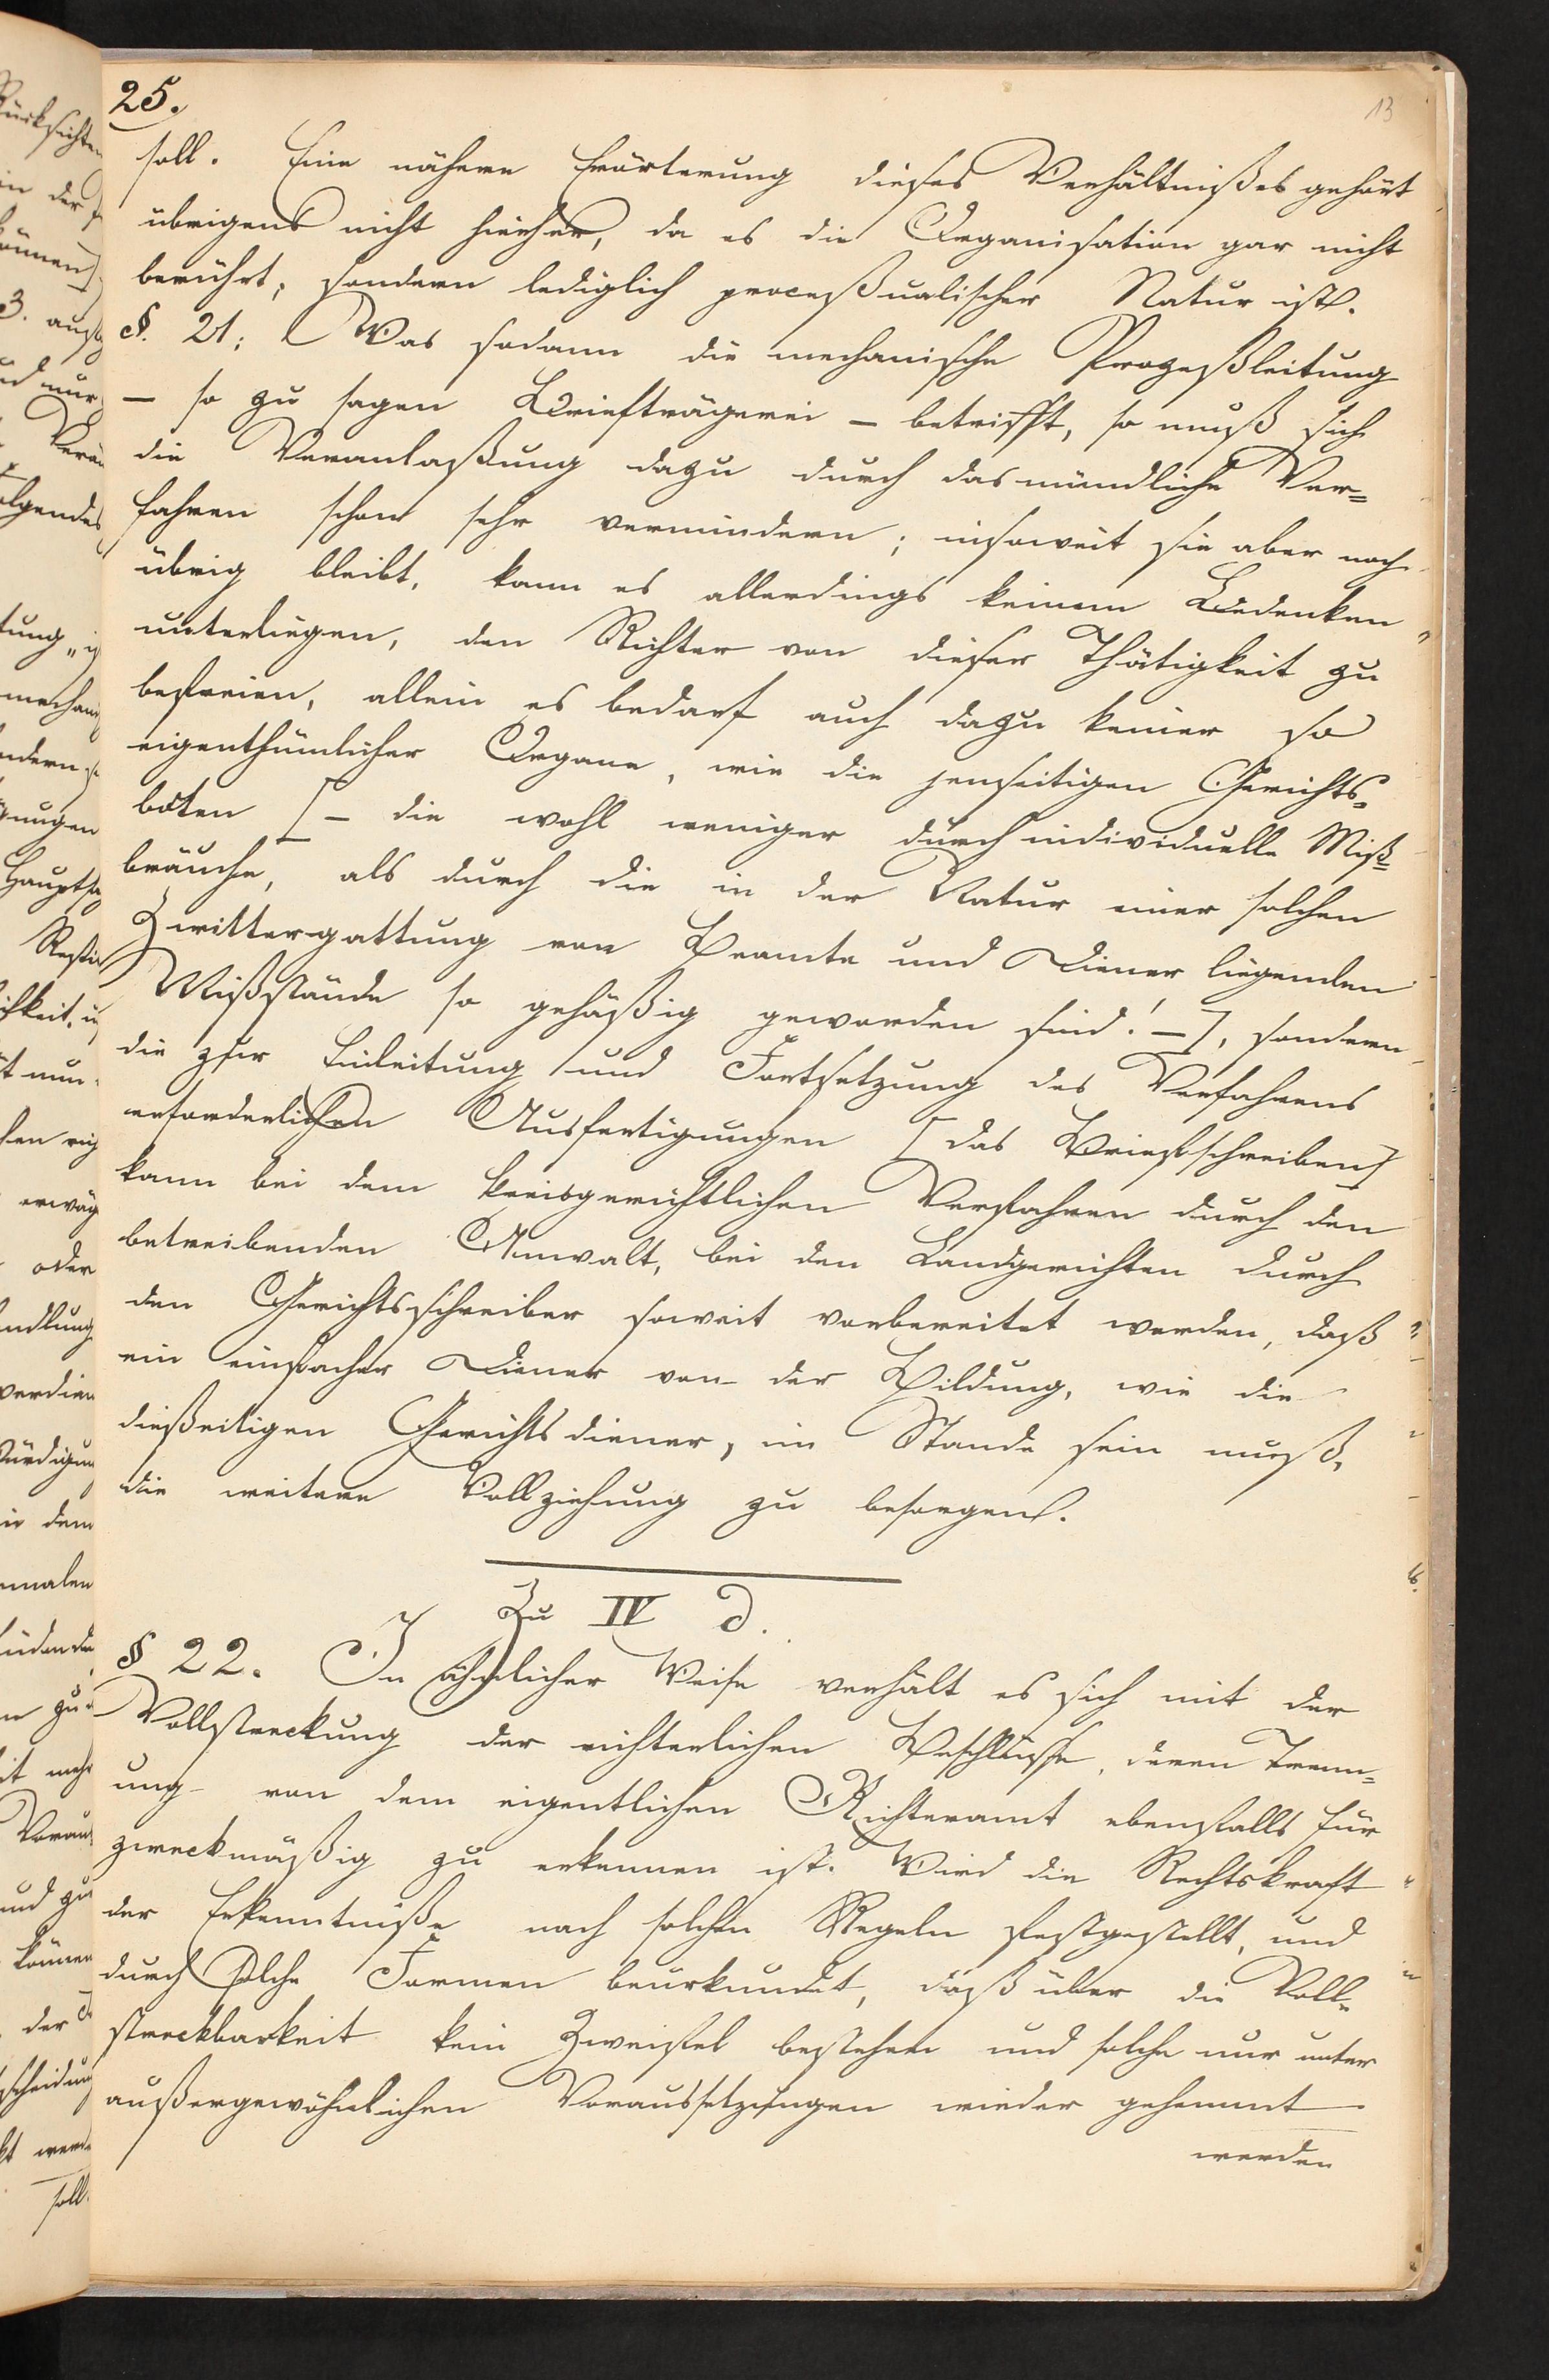 25.
13
soll. Eine nähere Erörterung dieses Verhältnißes gehört
übrigens nicht hierher, da es die Organisation gar nicht
berührt, sondern lediglich proceßualischer Natur ist.
§. 21. Was sodann die mechanische Prozeßleitung
– so zu sagen Briefträgerei – betrifft, so muß sich
die Veranlaßung dazu durch das mündliche Ver=
fahren schon sehr vermindern; insoweit sie aber noch
übrig bleibt, kann es allerdings keinem Bedenken
unterliegen, den Richter von dieser Thätigkeit zu
befreien, allein es bedarf auch dazu keiner so
eigenthümlicher Organe, wie die jenseitigen Gerichts=
boten [– die wohl weniger durch individuelle Miß=
bräuche, als durch die in der Natur einer solchen
Zwittergattung von Beamte und Diener liegenden
Mißstände so gehäßig geworden sind! –], sondern
die zur Einleitung und Fortsetzung des Verfahrens
erforderlichen Ausfertigungen [das Briefschreiben]
kann bei dem kreisgerichtlichen Verfahren durch den
betreibenden Anwalt, bei den Landgerichten durch
den Gerichtsschreiber soweit vorbereitet werden, daß
ein einfacher Diener von der Bildung, wie die
dießeitigen Gerichtsdiener, im Stande sein muß,
die weitere Vollziehung zu besorgen.
Zu IV d.
§ 22. In ähnlicher Weise verhält es sich mit der
Vollstreckung der richterlichen Beschlüsse, deren Trenn=
ung von dem eigentlichen Richteramt ebenfalls für
zweckmäßig zu erkennen ist. Wird die Rechtskraft
der Erkenntniße nach solchen Regeln festgestellt, und
durch solche Formen beurkundet, daß über die Voll=
streckbarkeit kein Zweifel bestehen und solche nur unter
außergewöhnlichen Voraussetzungen wieder gehemmt
werden